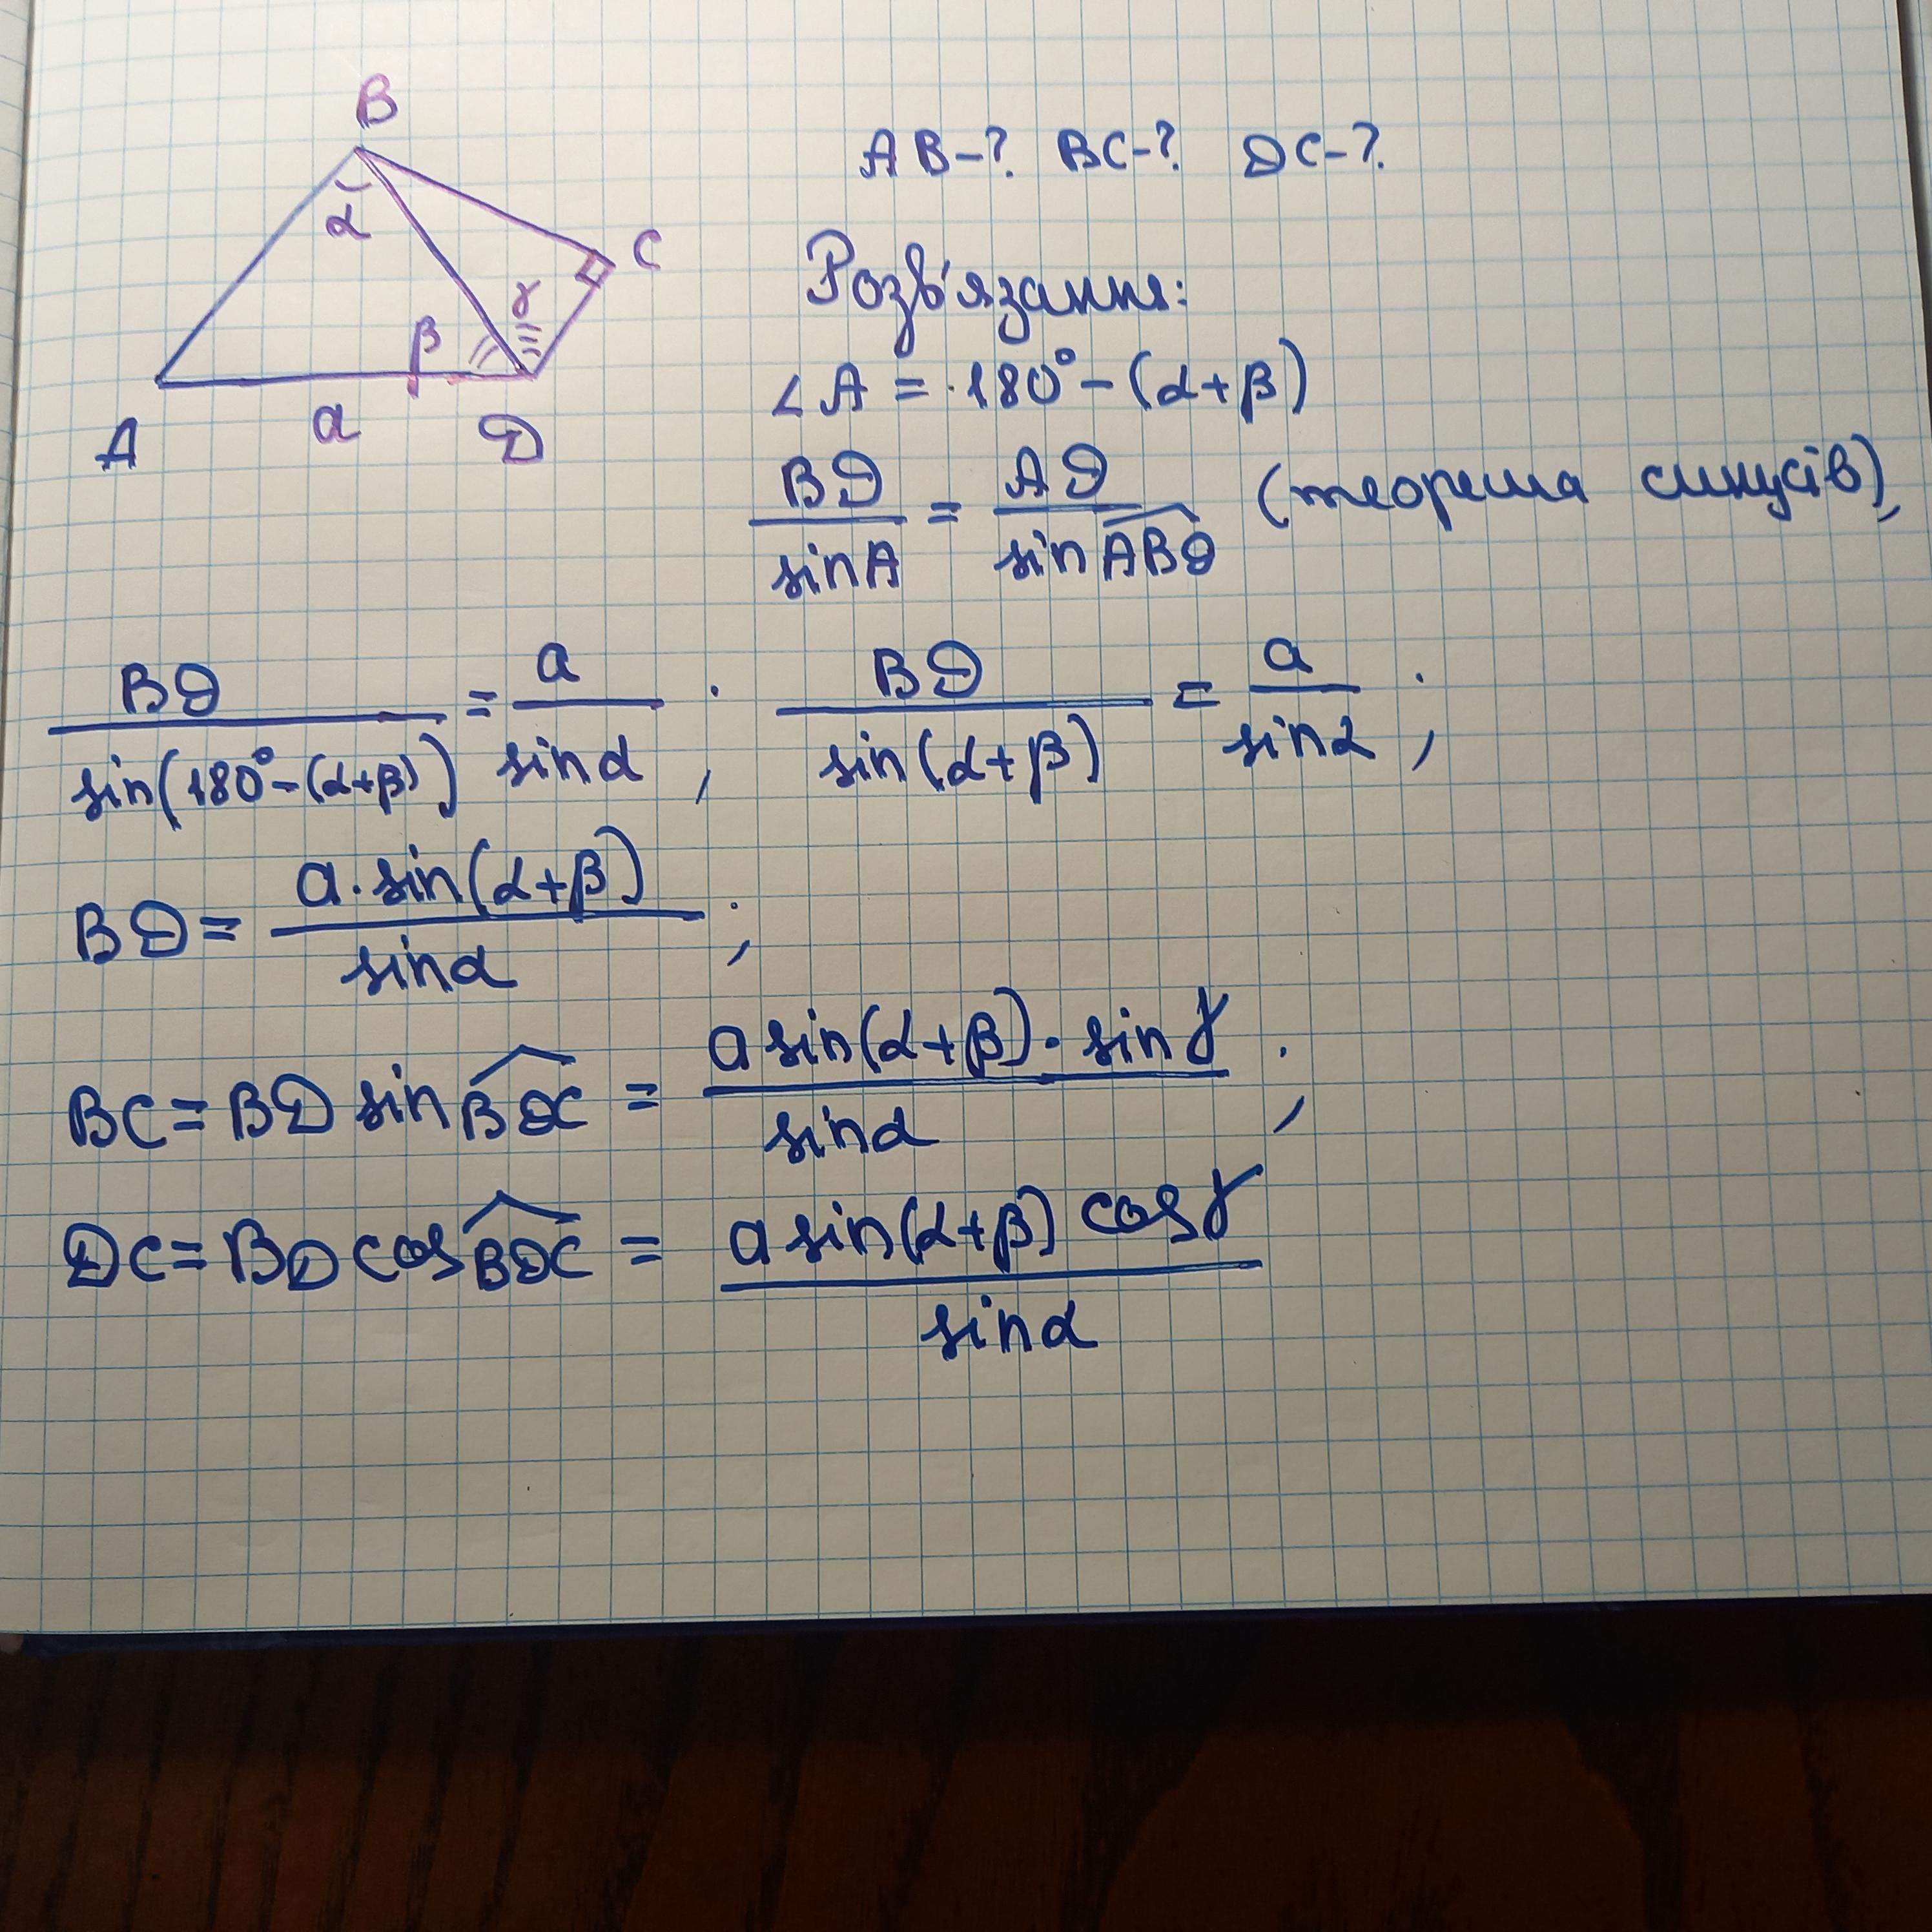 B
α
C
γ
β
A
a
D
AB-? BC-? DC-?
Розв'язання:
∠A = 180° - (α+β)
BD/sinA = AD/sin ABD (теорема синусів),
BD/sin(180°-(α+β)) = a/sinα ; BD/sin(α+β) = a/sinα ;
BD = a·sin(α+β)/sinα ;
BC = BD sin BDC = a sin(α+β)· sinγ/sinα ;
DC = BD cos BDC = a sin(α+β) cosγ/sinα